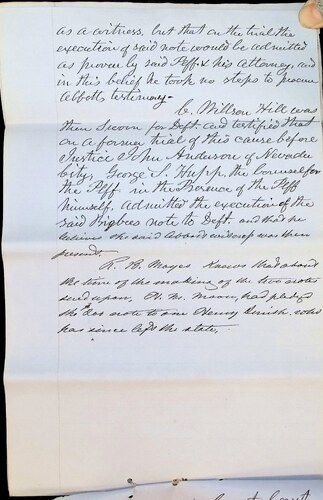 as a witness, but that on the trial the
execution of said note would be admitted
as proven by said Plff. & his Attorney, and
in this belief he took no steps to procure
Abbotts testimony.
C. Willson Hill was
then sworn for Deft. and testified that
on a former trial of this cause before
Justice John Anderson of Nevada
City, George S. Hupp, the Counsel for
the Plff. in the Presence of the Plff
himself, admitted the execution of the
said Bigbees note to Deft. and that he
believes the said Abbott witness was then
present.
R. B. Moyes knows that about
the time of the making of the two notes
sued upon, M. Mann, had pledged
the note to one Henry who
has since left the state.